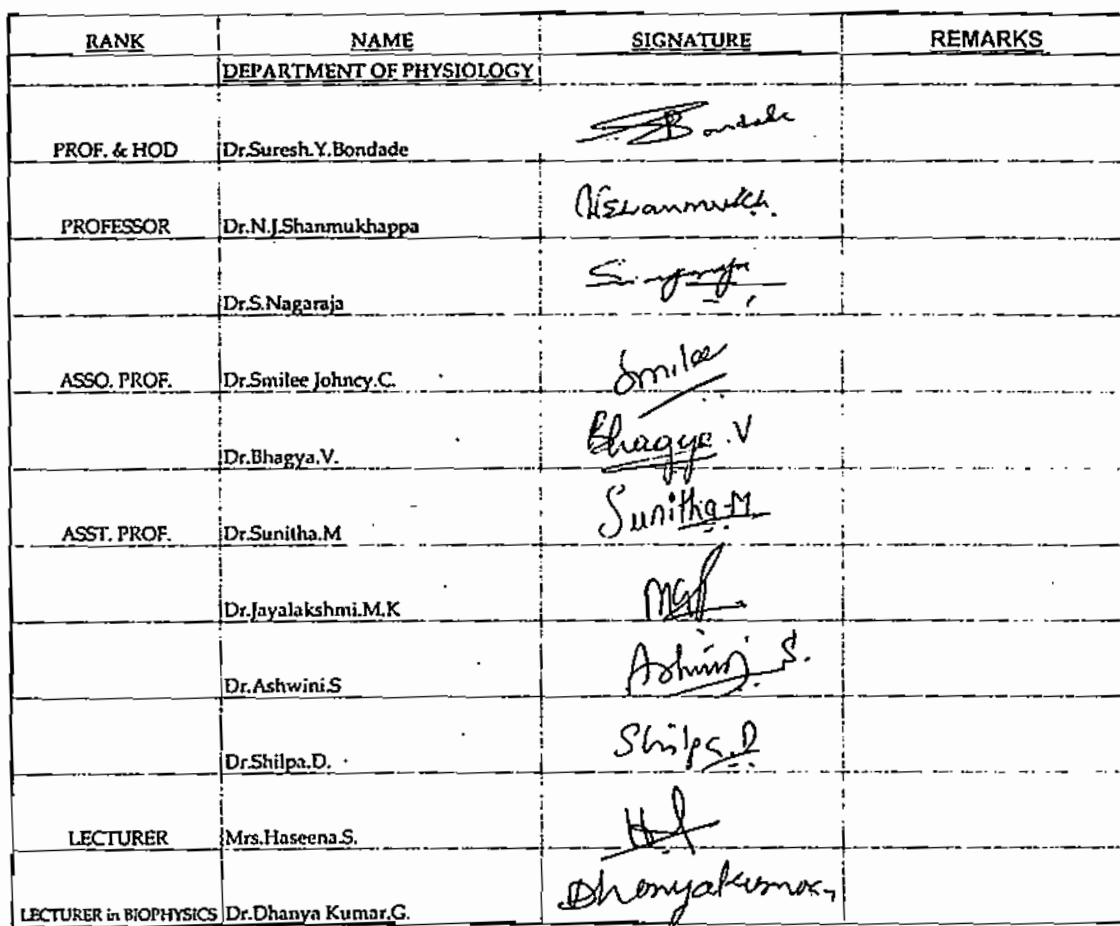 RANK NAME SIGNATURE REMARKS
DEPARTMENT OF PHYSIOLOGY
PROF. & HOD Dr.Suresh.Y.Bondade Bondade
PROFESSOR Dr.N.J.Shanmukhappa
Dr.S.Nagaraja
ASSO. PROF. Dr.Smilee Johncy.C. Smilee
Dr.Bhagya.V. Bhagya.V
ASST. PROF. Dr.Sunitha.M Sunitha.M
Dr.Jayalakshmi.M.K
Dr.Ashwini.S Ashwini S.
Dr.Shilpa.D. Shilpa.D
LECTURER Mrs.Haseena.S.
LECTURER in BIOPHYSICS Dr.Dhanya Kumar.G.